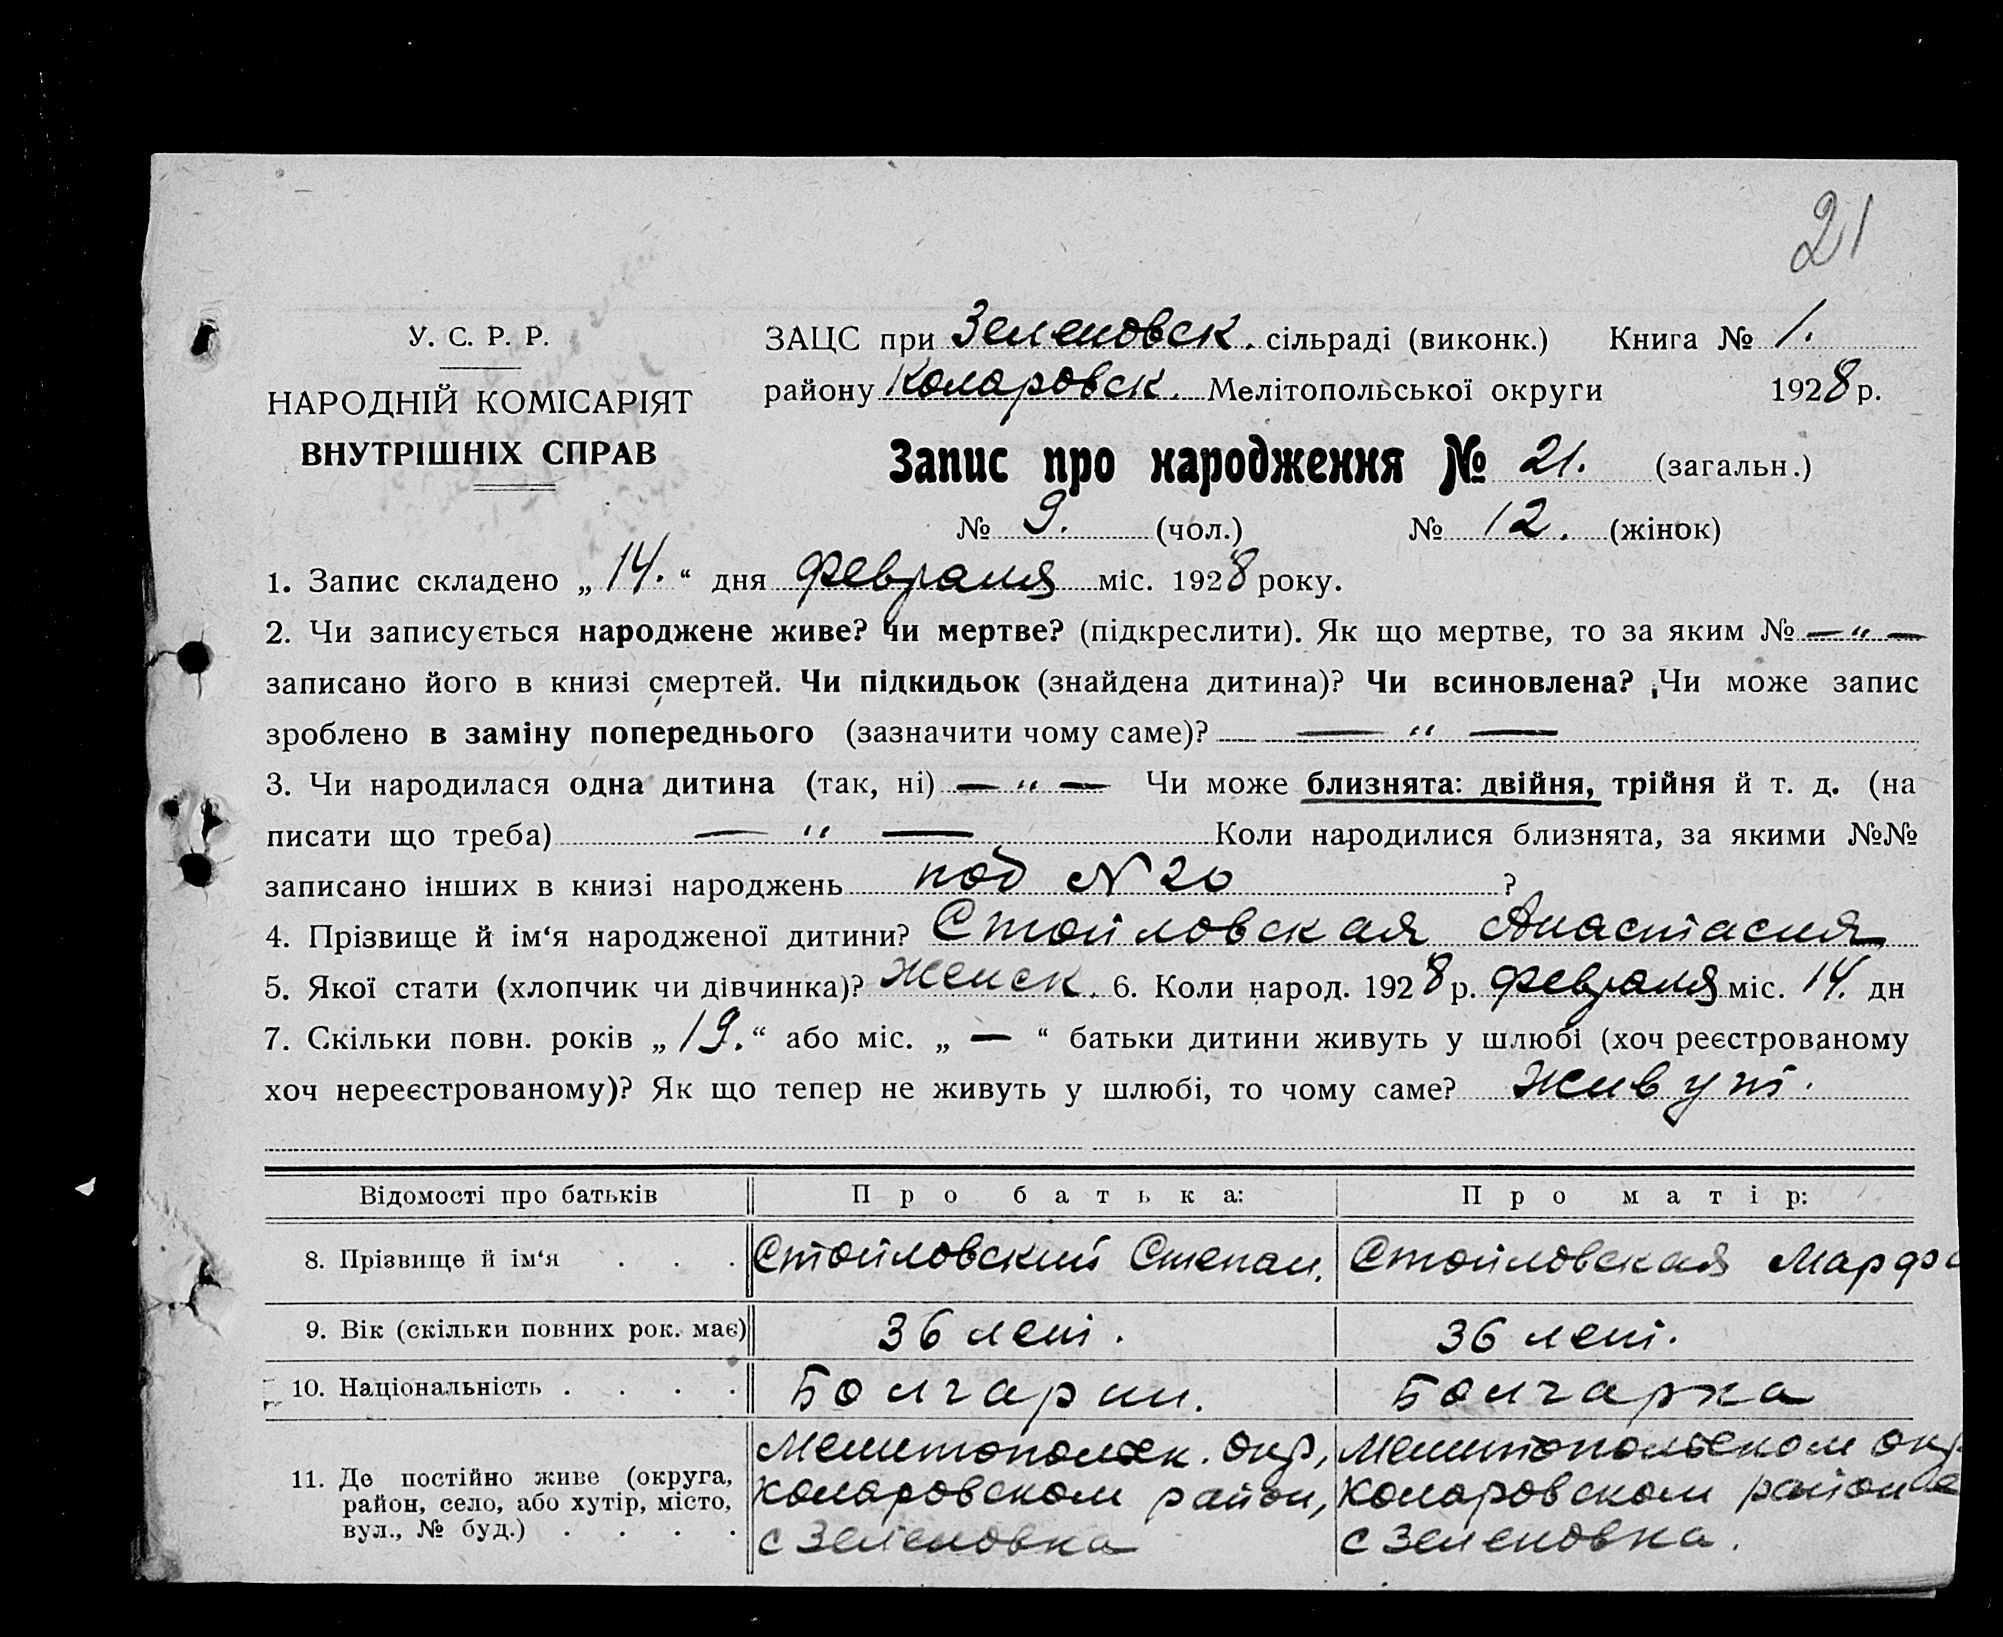 21
У. С. Р. Р.
НАРОДНІЙ КОМІСАРІЯТ
ВНУТРІШНІХ СПРАВ
ЗАЦС при Зеленовск. сільраді (виконк.) Книга № 1.
району Коларовск. Мелітопольської округи 1928 р.
Запис про народження № 21. (загальн.)
№ 9. (чол.) № 12. (жінок)
1. Запис складено „14.“ дня февраля міс. 1928 року.
2. Чи записується народжене живе? чи мертве? (підкреслити). Як що мертве, то за яким № — „ —
записано його в книзі смертей. Чи підкидьок (знайдена дитина)? Чи всиновлена? Чи може запис
зроблено в заміну попереднього (зазначити чому саме)? — „ —
3. Чи народилася одна дитина (так, ні) — „ — Чи може близнята: двійня, трійня й т. д. (на
писати що треба) — „ — Коли народилися близнята, за якими №№
записано інших в книзі народжень под № 20 ?
4. Прізвище й ім‘я народженої дитини? Стойловская Анастасия
5. Якої стати (хлопчик чи дівчинка)? Женск. 6. Коли народ. 1928 р. февраля міс. 14. дн
7. Скільки повн. років „19.“ або міс. „ — “ батьки дитини живуть у шлюбі (хоч реєстрованому
хоч нереєстрованому)? Як що тепер не живуть у шлюбі, то чому саме? Живут.
Відомості про батьків Про батька: Про матір:
8. Прізвище й ім‘я . . . Стойловский Степан. Стойловская Марфа
9. Вік (скільки повних рок. має) 36 лет. 36 лет.
10. Національність . . . . Болгарин. Болгарка
11. Де постійно живе (округа, район, село, або хутір, місто, вул., № буд.) . . . .
Мелитопольск. окр,
Коларовском район,
с Зеленовка
Мелитопольском окр
Коларовском районе
с Зеленовка.